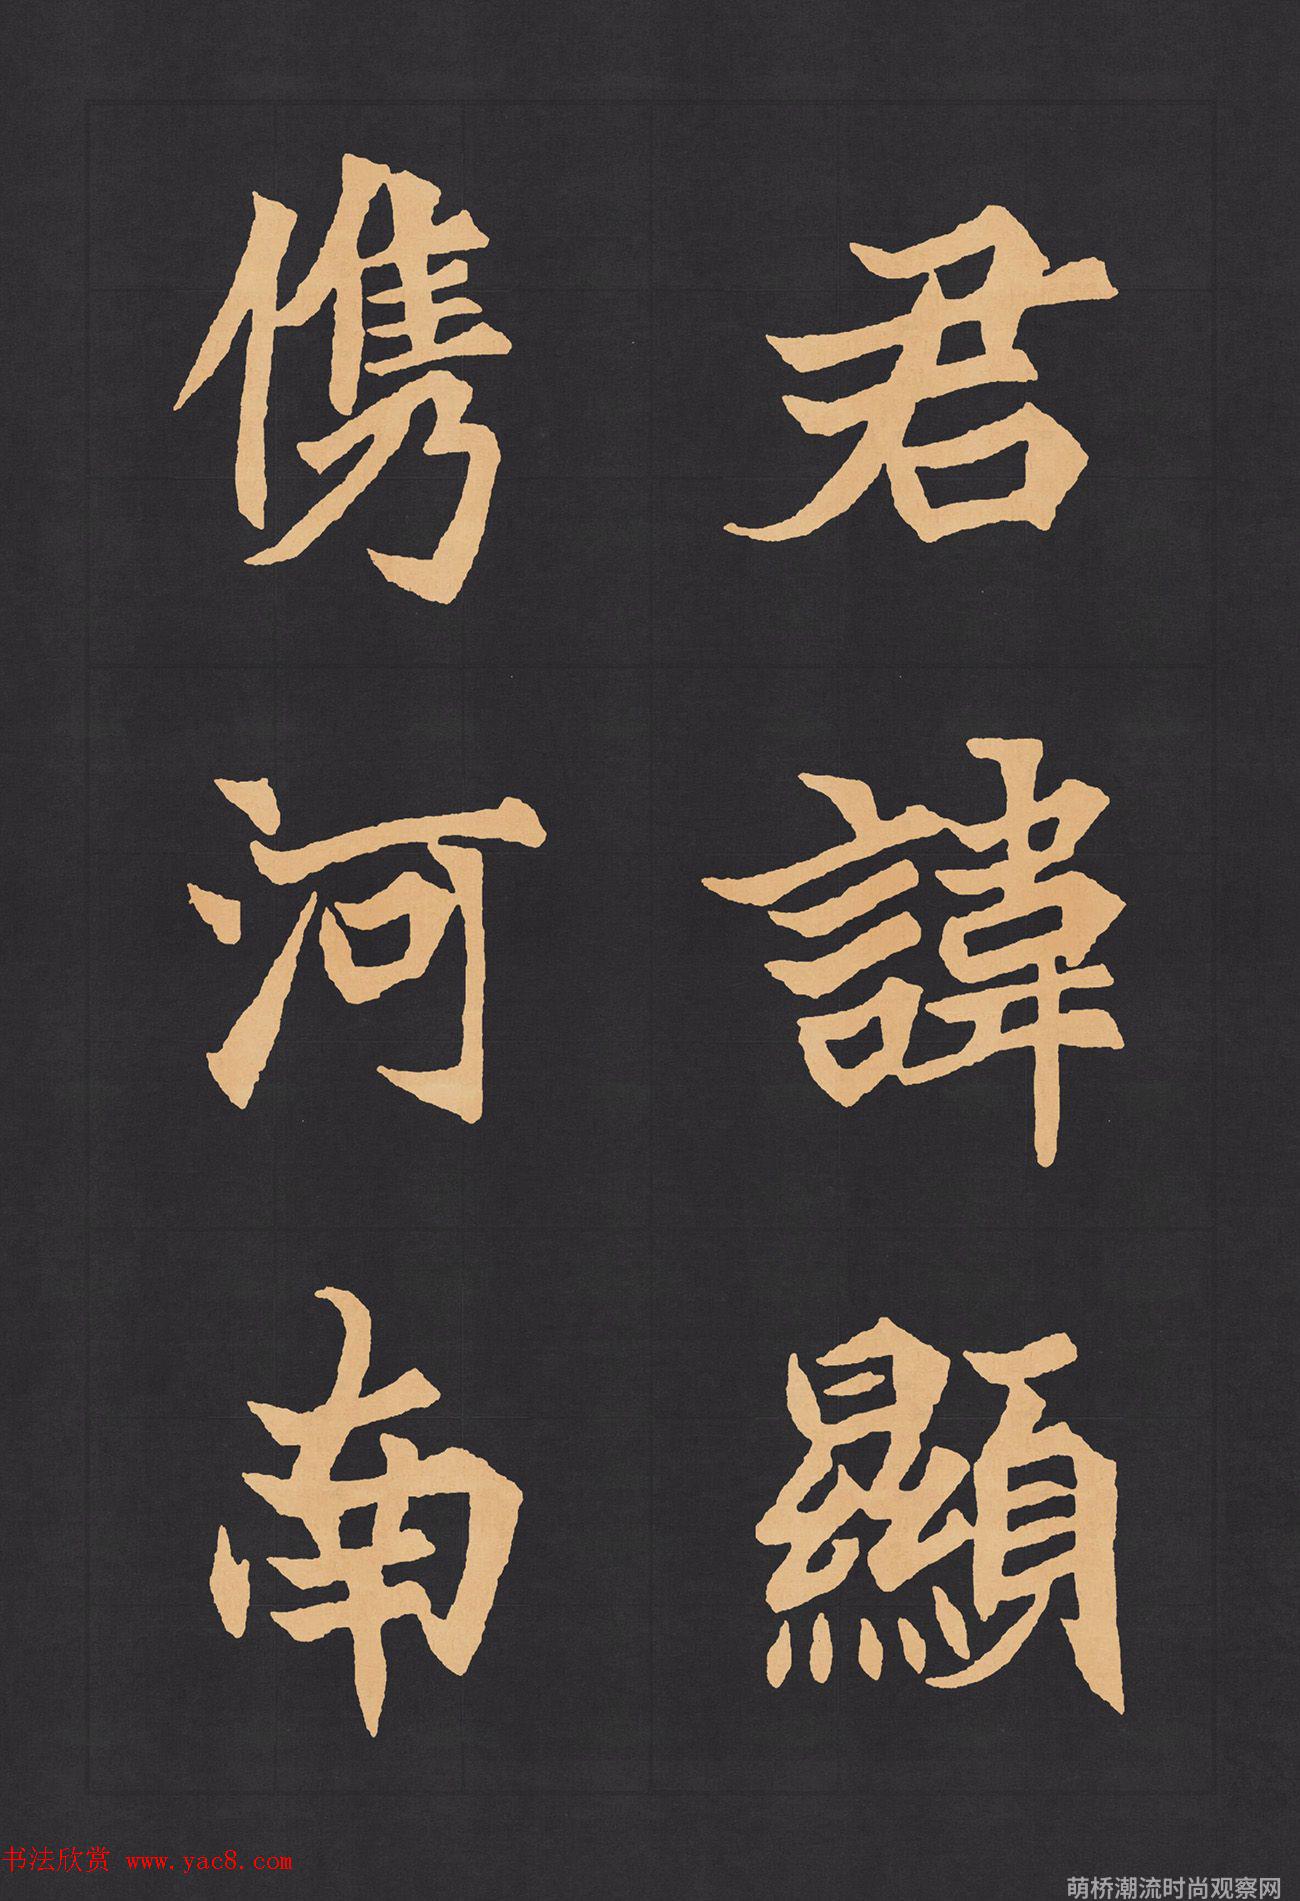 君諱顯
儁河南
书法欣赏 www.yac8.com
萌桥潮流时尚观察网